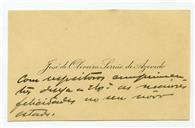 José de Oliveira Serrão de Azevedo
Com respeitosos cumprimen-
tos deseja a as maiores
felicidades no seu novo
estado.